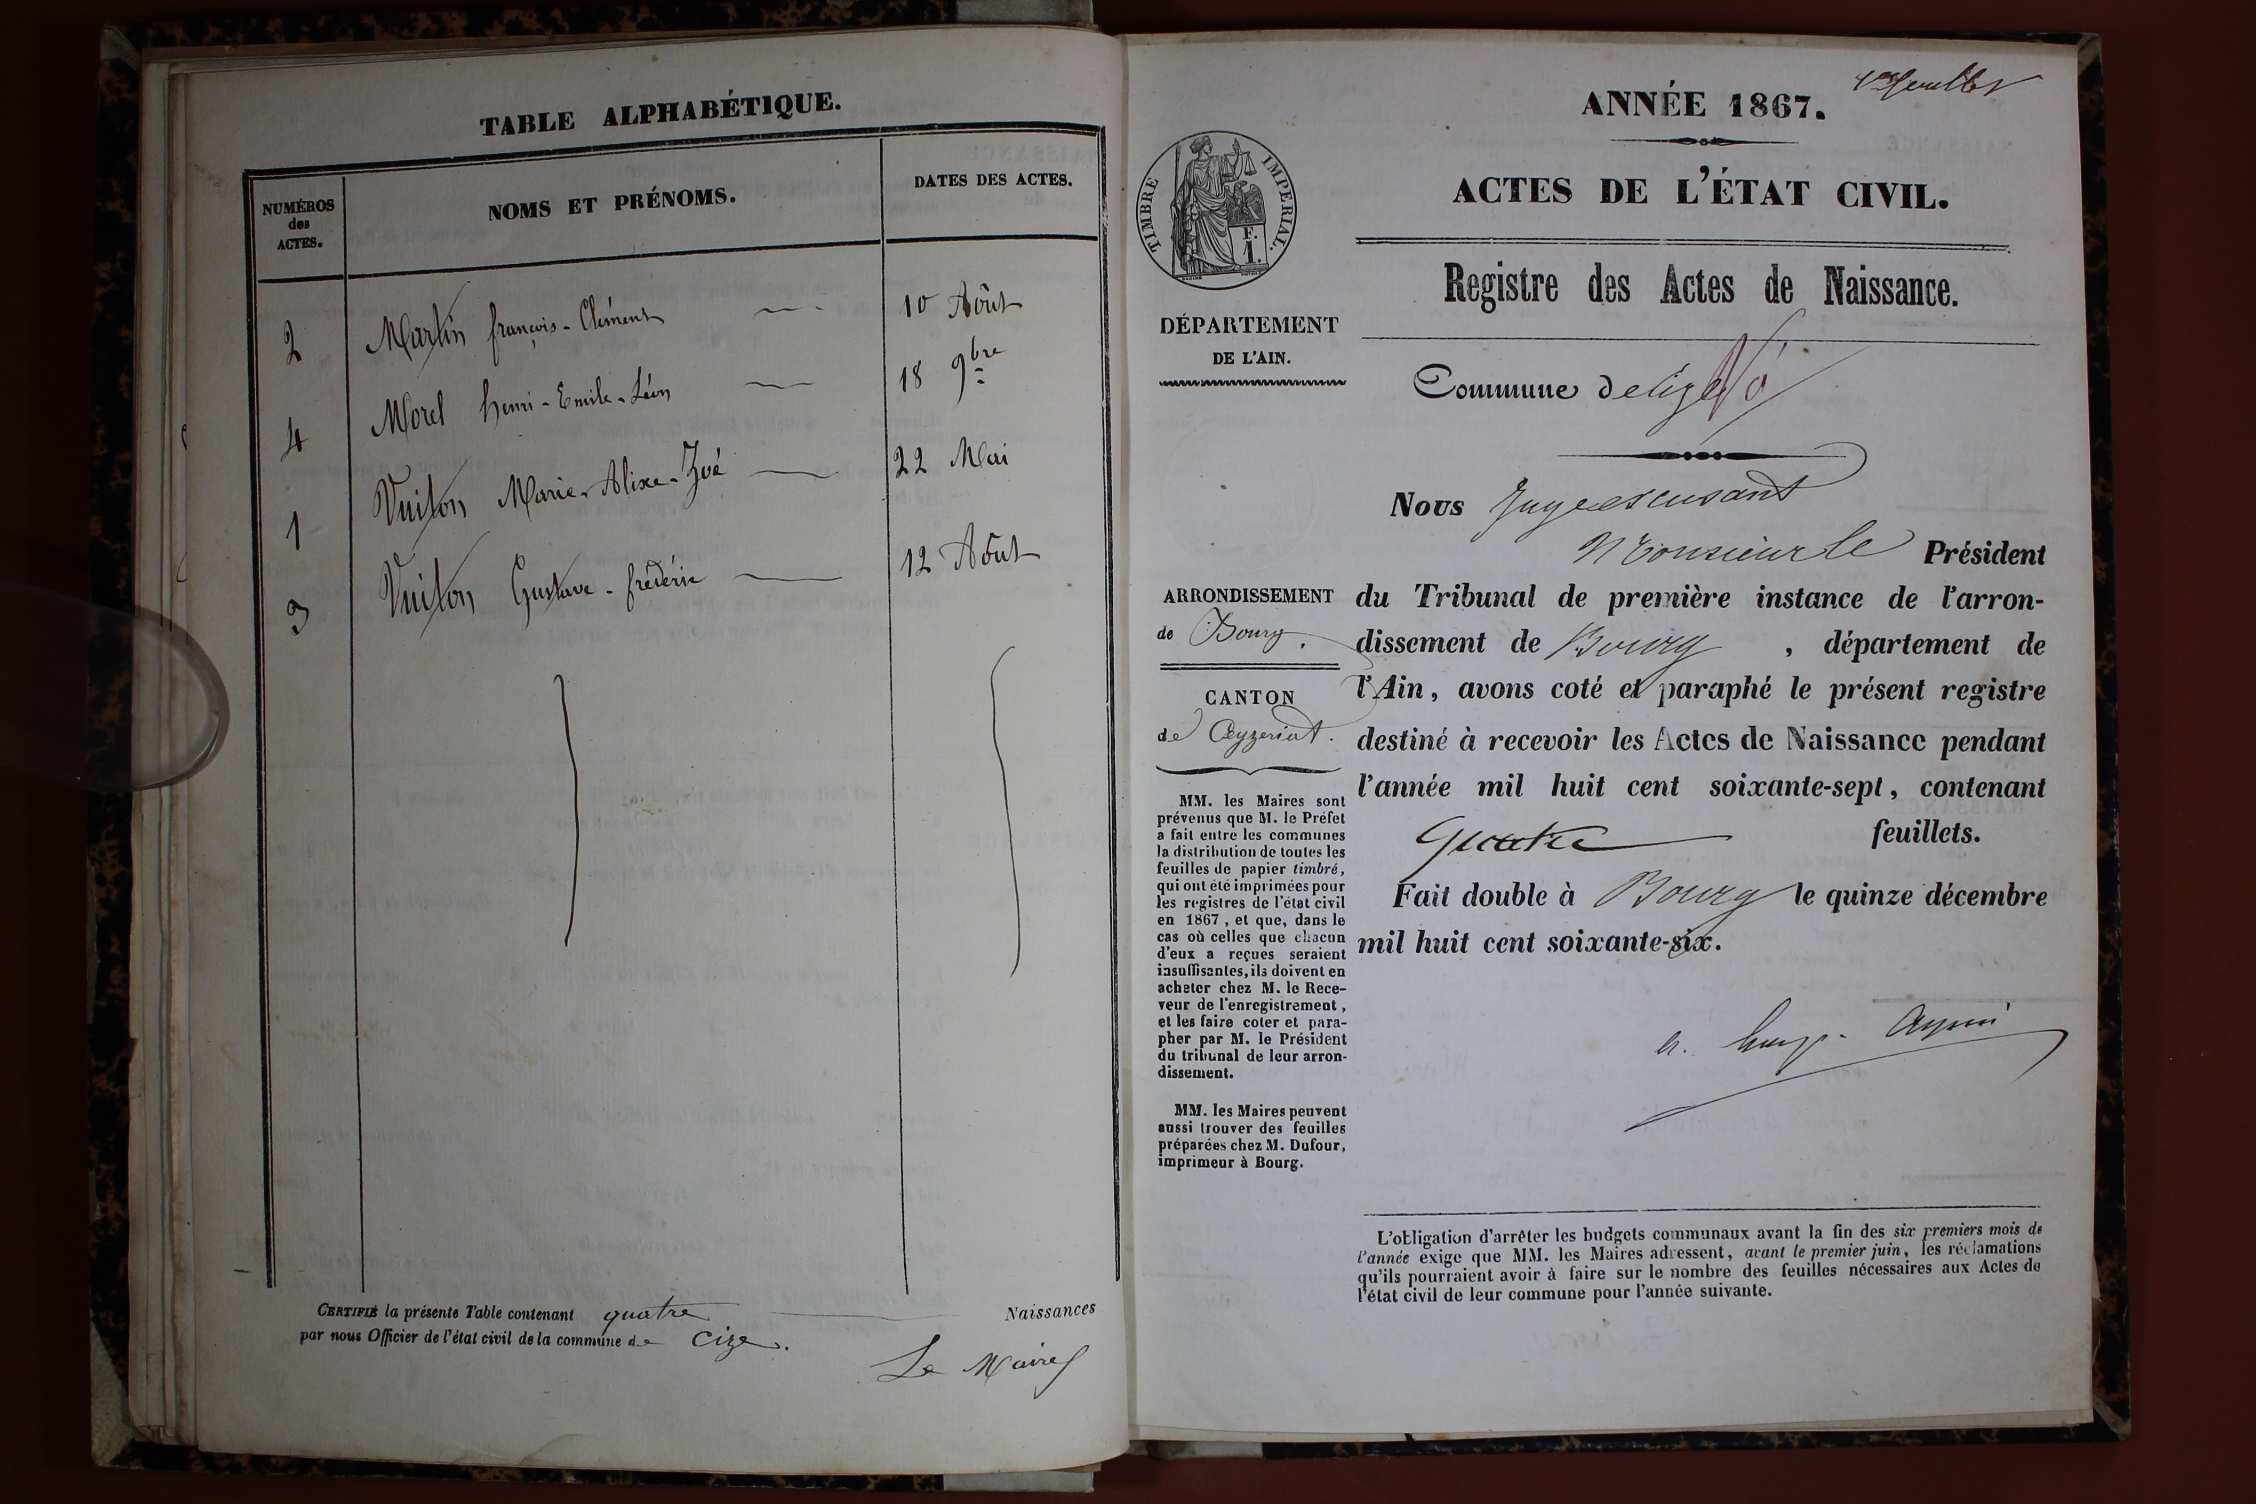 TABLE ALPHABÉTIQUE.
NUMÉROS
des
ACTES.
NOMS ET PRÉNOMS.
DATES DES ACTES.
2 Martin françois-Clément 10 Août
4 Morel henri-Emile-Léon 18 9bre
1 Vuiton Marie-Alixe-Zoé 22 Mai
3 Vuiton Gustave-frédéric 12 Août
CERTIFIÉ la présente Table contenant quatre Naissances
par nous Officier de l'état civil de la commune de Cize.
Le Maire
ANNÉE 1867.
ACTES DE L'ÉTAT CIVIL.
TIMBRE IMPERIAL.
F.
1.
Registre des Actes de Naissance.
DÉPARTEMENT
DE L'AIN.
Commune de Cize
Nous Juge excusant
Monsieur le Président
du Tribunal de première instance de l'arron-
dissement de Bourg, département de
l'Ain, avons coté et paraphé le présent registre
destiné à recevoir les Actes de Naissance pendant
l'année mil huit cent soixante-sept, contenant
quatre feuillets.
Fait double à Bourg le quinze décembre
mil huit cent soixante-six.
ARRONDISSEMENT
de Bourg.
CANTON
de Ceyzeriat.
MM. les Maires sont
prévenus que M. le Préfet
a fait entre les communes
la distribution de toutes les
feuilles de papier timbré,
qui ont été imprimées pour
les registres de l'état civil
en 1867, et que, dans le
cas où celles que chacun
d'eux a reçues seraient
insuffisantes, ils doivent en
acheter chez M. le Rece-
veur de l'enregistrement,
et les faire coter et para-
pher par M. le Président
du tribunal de leur arron-
dissement.
MM. les Maires peuvent
aussi trouver des feuilles
préparées chez M. Dufour,
imprimeur à Bourg.
L'obligation d'arrêter les budgets communaux avant la fin des six premiers mois de
l'année exige que MM. les Maires adressent, avant le premier juin, les réclamations
qu'ils pourraient avoir à faire sur le nombre des feuilles nécessaires aux Actes de
l'état civil de leur commune pour l'année suivante.